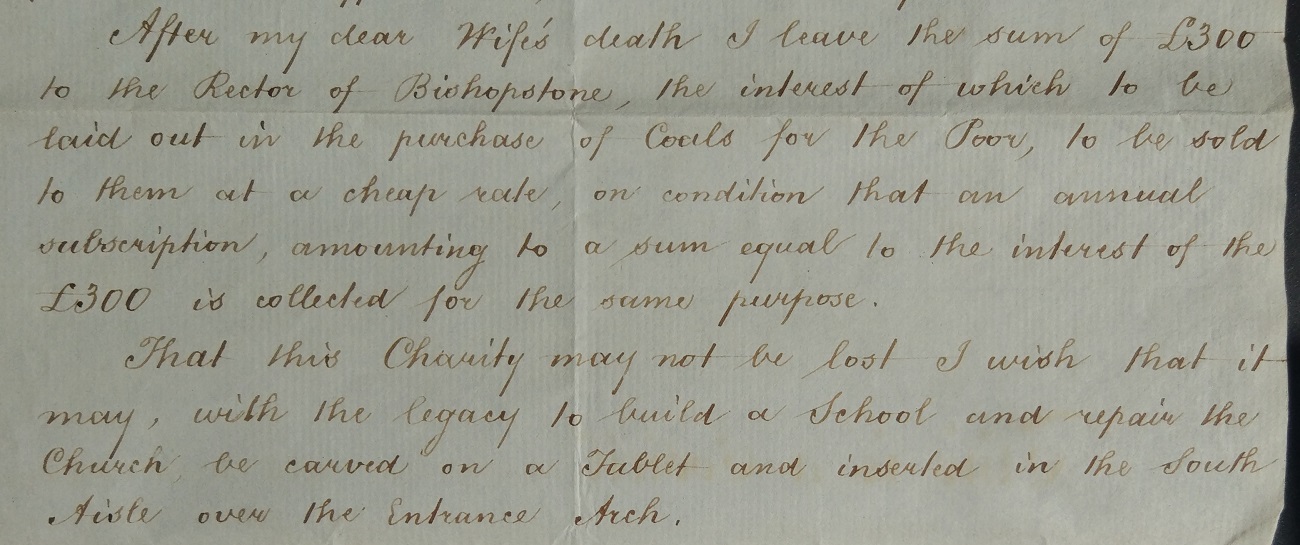 After my dear Wife's death I leave the sum of £300
to the Rector of Bishopstone, the interest of which to be
laid out in the purchase of Coals for the Poor, to be sold
to them at a cheap rate, on condition that an annual
subscription, amounting to a sum equal to the interest of the
£300 is collected for the same purpose.
That this Charity may not be lost I wish that it
may, with the legacy to build a School and repair the
Church, be carved on a Tablet and inserted in the South
Aisle over the Entrance Arch.